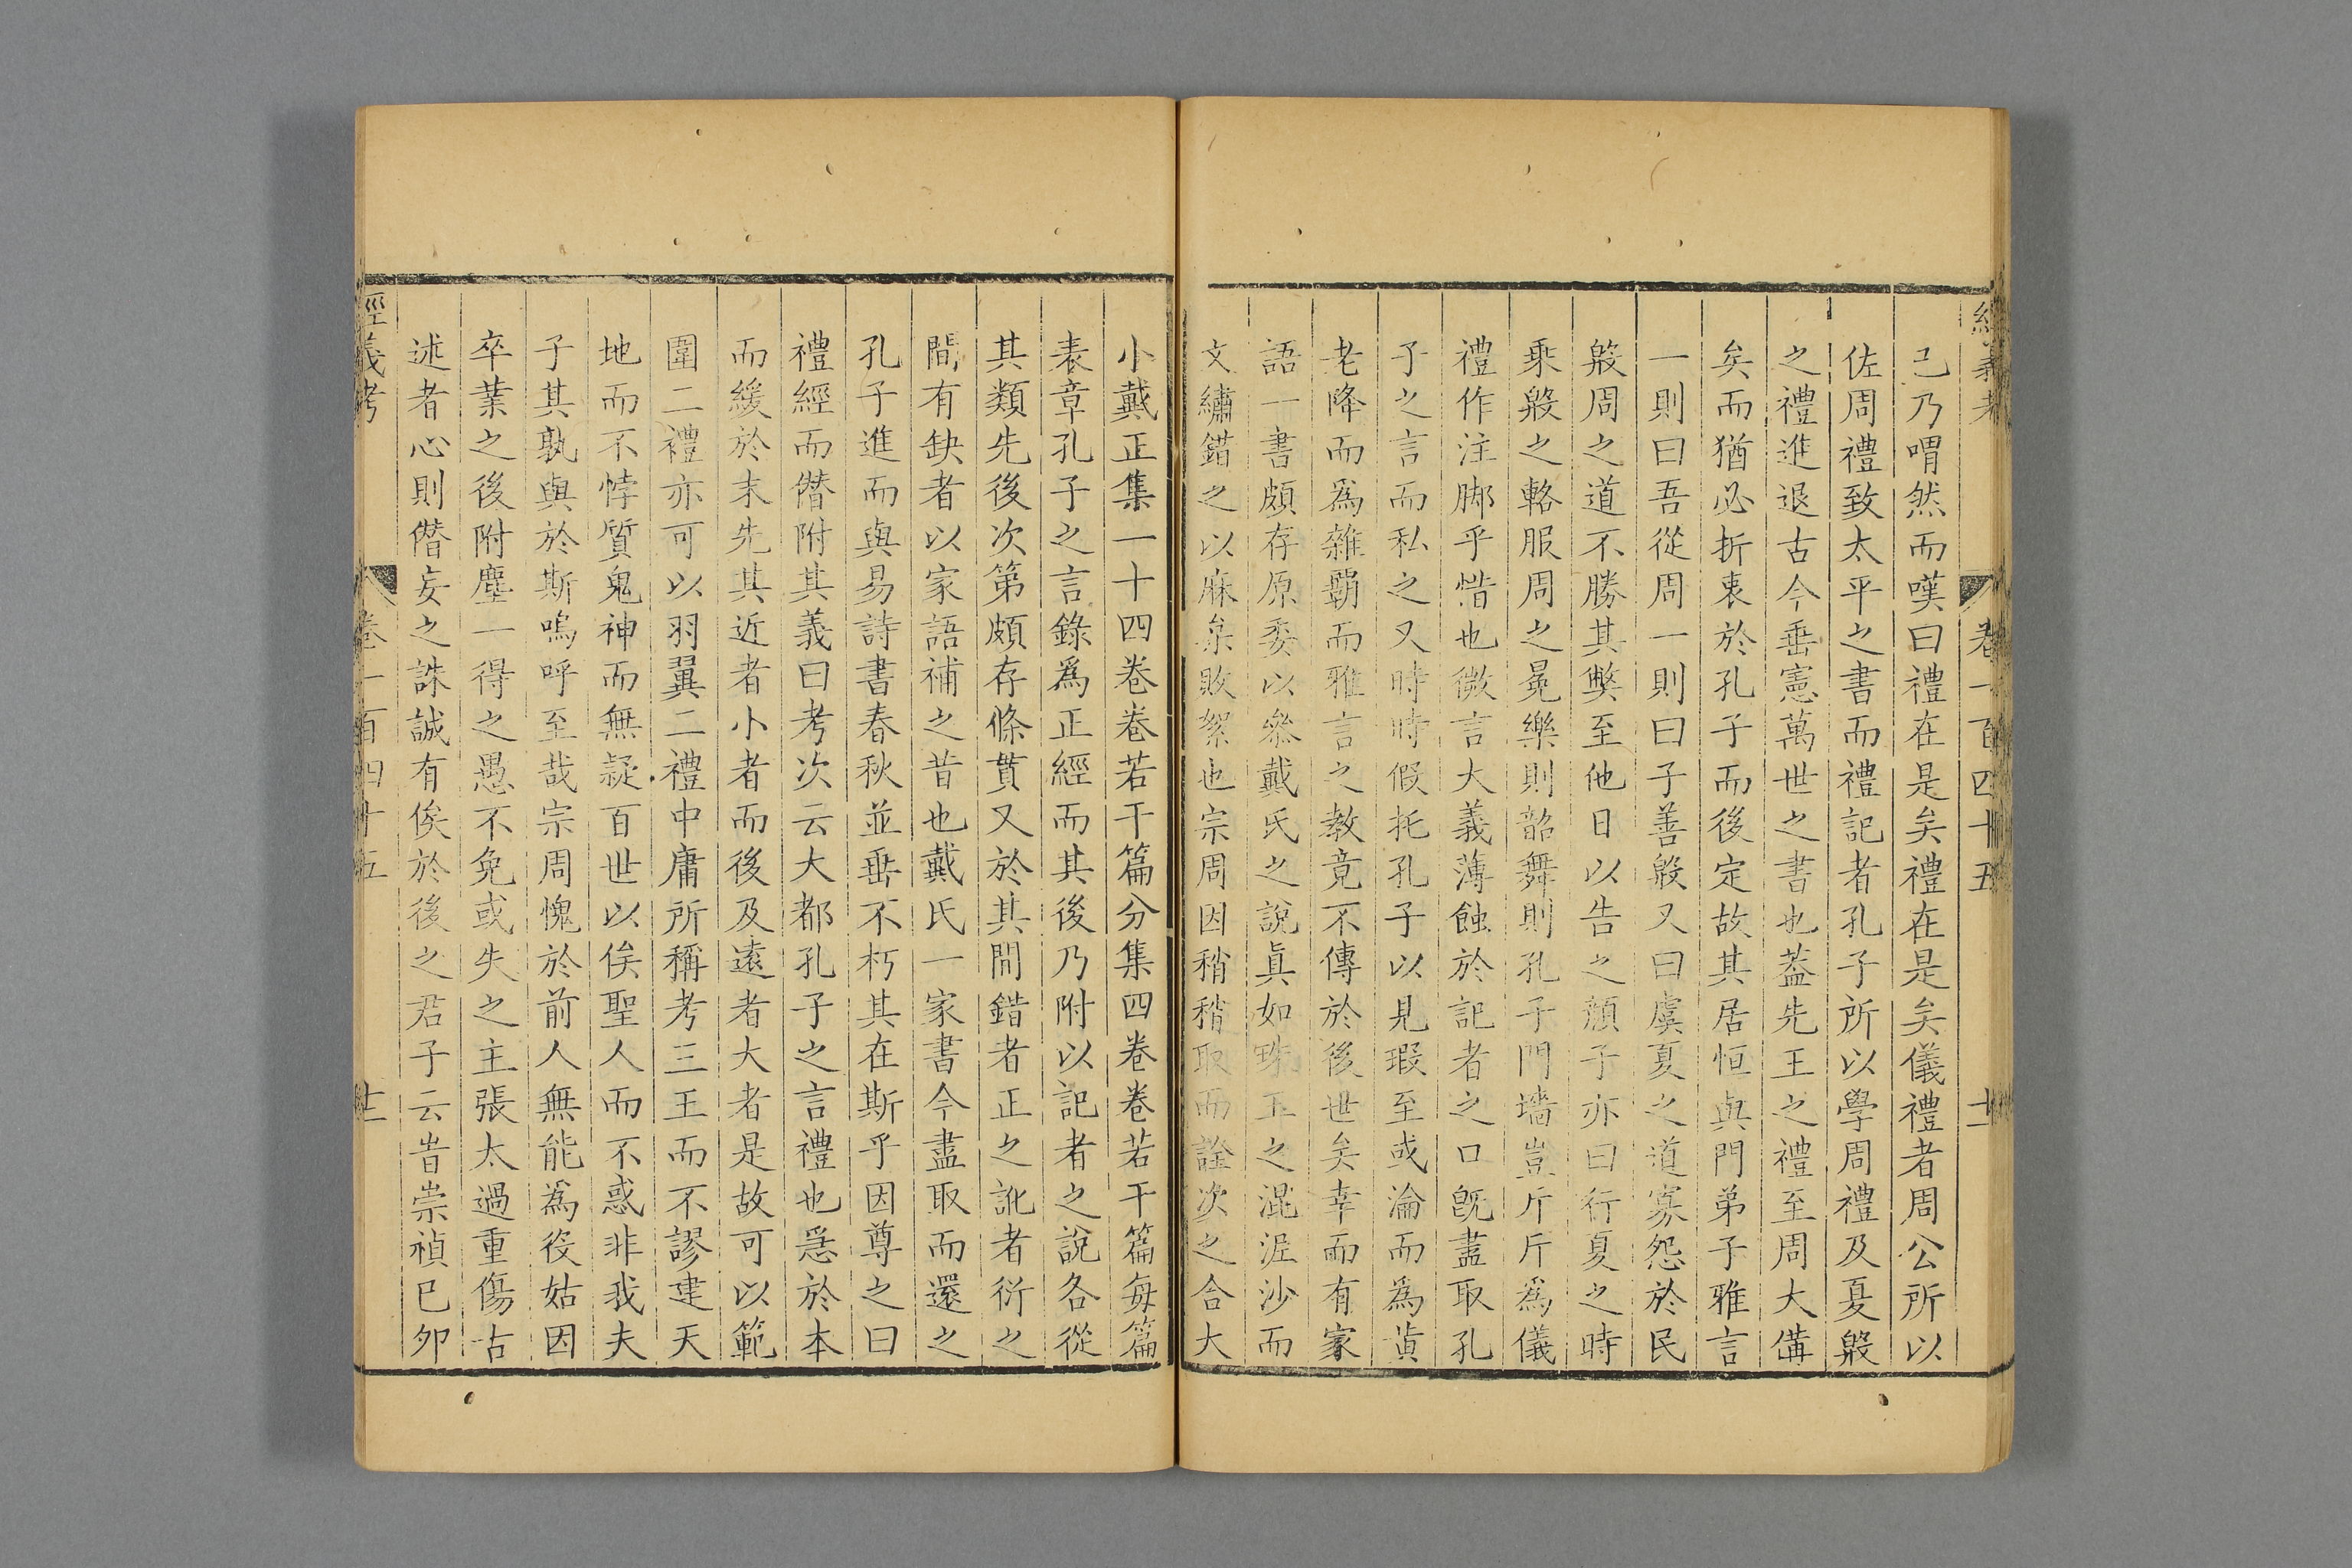 經義考 卷一百四十五 十一
已乃喟然而嘆曰禮在是矣禮在是矣儀禮者周公所以
佐周禮致太平之書而禮記者孔子所以學周禮及夏殷
之禮進退古今垂憲萬世之書也葢先王之禮至周大備
矣而猶必折衷於孔子而後定故其居恒與門弟子雅言
一則曰吾從周一則曰子善殷又曰虞夏之道寡怨於民
殷周之道不勝其弊至他日以告之顏子亦曰行夏之時
乘殷之輅服周之冕樂則韶舞則孔子門墻豈斤斤爲儀
禮作注脚乎惜也微言大義薄蝕於記者之口旣盡取孔
子之言而私之又時時假托孔子以見瑕至或淪而爲黃
老降而爲雜霸而雅言之教竟不傳於後世矣幸而有家
語一書頗存原委以叅戴氏之說眞如珠玉之混泥沙而
文繡錯之以麻枲敗絮也宗周因稍稍取而詮次之合大
小戴正集一十四卷卷若干篇分集四卷卷若干篇每篇
表章孔子之言錄爲正經而其後乃附以記者之說各從
其類先後次第頗存條貫又於其間錯者正之訛者衍之
間有缺者以家語補之昔也戴氏一家書今盡取而還之
孔子進而與易詩書春秋並垂不朽其在斯乎因尊之曰
禮經而僭附其義曰考次云大都孔子之言禮也急於本
而緩於末先其近者小者而後及遠者大者是故可以範
圍二禮亦可以羽翼二禮中庸所稱考三王而不謬建天
地而不悖質鬼神而無疑百世以俟聖人而不惑非我夫
子其孰與於斯嗚呼至哉宗周愧於前人無能爲役姑因
卒業之後附塵一得之愚不免或失之主張太過重傷古
述者心則僭妄之誅誠有俟於後之君子云旹崇禎已卯
經義考 卷一百四十五 十一